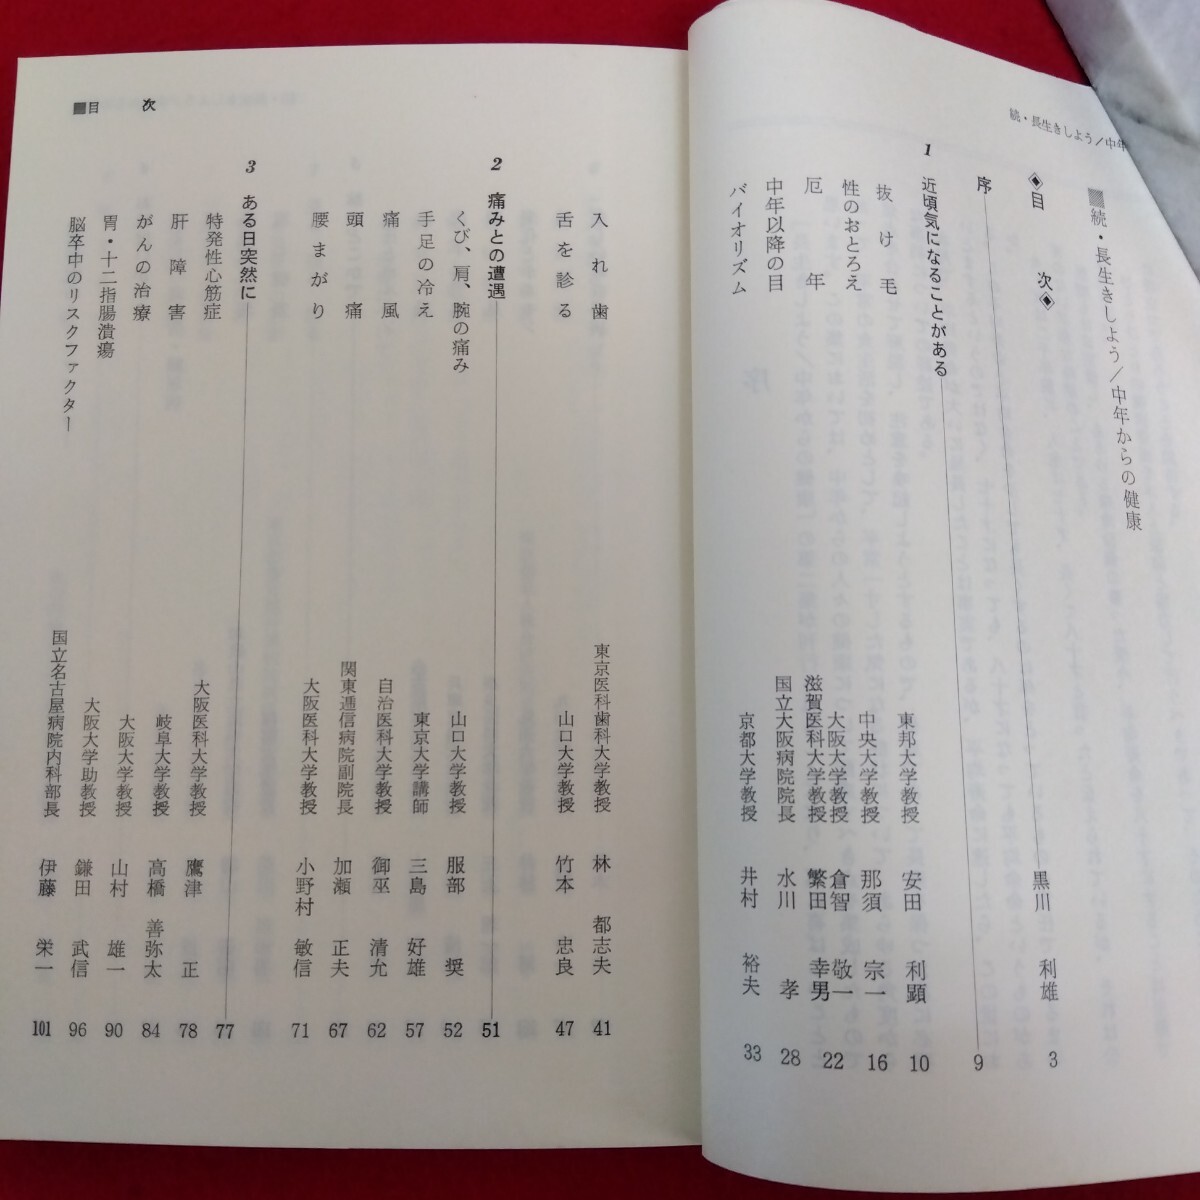 続・長生きしよう/中年
■続・長生きしよう/中年からの健康
◆目 次◆
序 黒川 利雄 3
1 近頃気になることがある 9
抜け毛 東邦大学教授 安田 利顕 10
性のおとろえ 中央大学教授 那須 宗一 16
厄年 大阪大学教授 倉智 敬一 22
滋賀医科大学教授 繁田 幸男
中年以降の目 国立大阪病院院長 水川 孝 28
バイオリズム 京都大学教授 井村 裕夫 33
■目 次
入れ歯 東京医科歯科大学教授 林 都志夫 41
舌を診る 山口大学教授 竹本 忠良 47
2 痛みとの遭遇 51
くび、肩、腕の痛み 山口大学教授 服部 奨 52
手足の冷え 東京大学講師 三島 好雄 57
痛風 自治医科大学教授 御巫 清允 62
頭痛 関東逓信病院副院長 加瀬 正夫 67
腰まがり 大阪医科大学教授 小野村 敏信 71
3 ある日突然に 77
特発性心筋症 大阪医科大学教授 鷹津 正 78
肝障害 岐阜大学教授 高橋 善弥太 84
がんの治療 大阪大学教授 山村 雄一 90
胃・十二指腸潰瘍 大阪大学助教授 鎌田 武信 96
脳卒中のリスクファクター 国立名古屋病院内科部長 伊藤 栄一 101